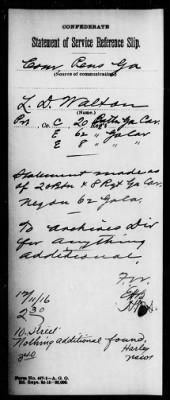 CONFEDERATE
Statement of Service Reference Slip.
Com Pens Ga
(Source of communication.)
L. D. Walton
Pvt, Co. C 20 Battn Ga Cav.
E 62 " Ga Cav
E 8 " "
Statement made as
of 20 Btn & 8 Rgt Ga Cav.
Neg on 62 Ga Ca.
To Archives Div
for anything
additional.
10/11/16
2 30
10. Street
Nothing additional found.
Form No. 467-1—A. G. O.